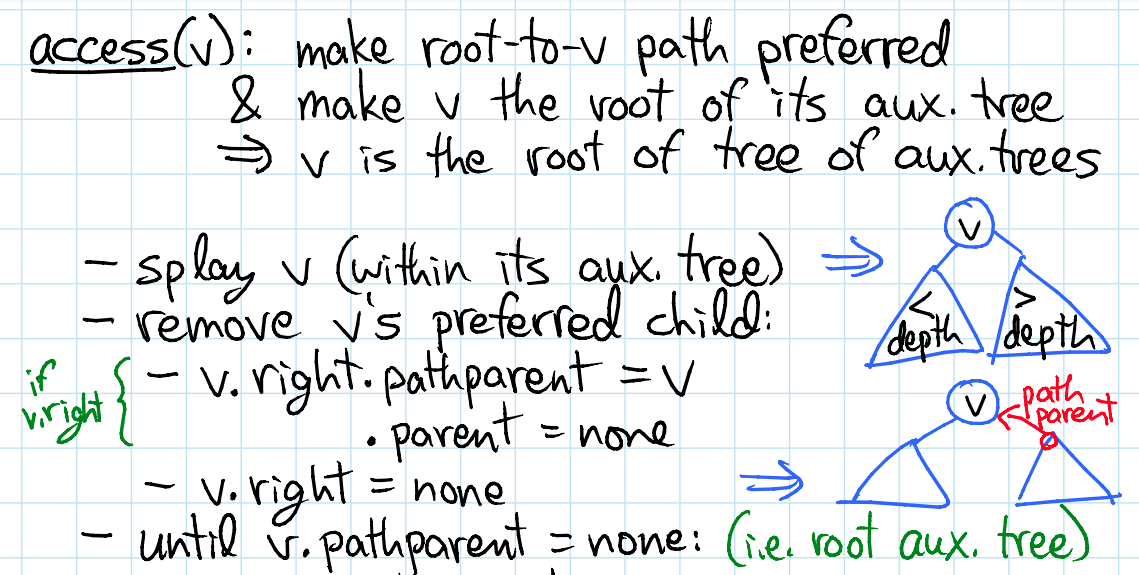 access(v): make root-to-v path preferred
& make v the root of its aux. tree
⇒ v is the root of tree of aux. trees
v
- splay v (within its aux. tree) ⇒
< depth > depth
- remove v's preferred child:
if v.right { - v.right.pathparent = v
v path parent
.parent = none
- v.right = none ⇒
- until v.pathparent = none: (i.e. root aux. tree)